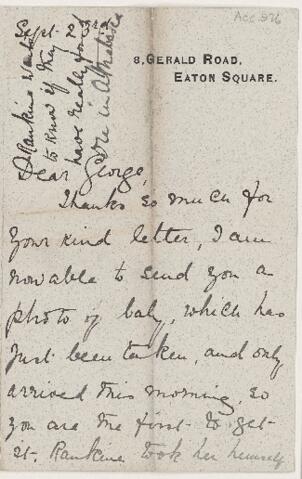 Acc. 526
Sept. 23rd
8, GERALD ROAD,
EATON SQUARE.
Rankine wants
to know if they
have really found
ore in Athabasca
Dear George,
Thanks so much for
your kind letter, I am
now able to send you a
photo of baby, which has
just been taken, and only
arrived this morning, so
you are the first to get
it. Rankine took her himself